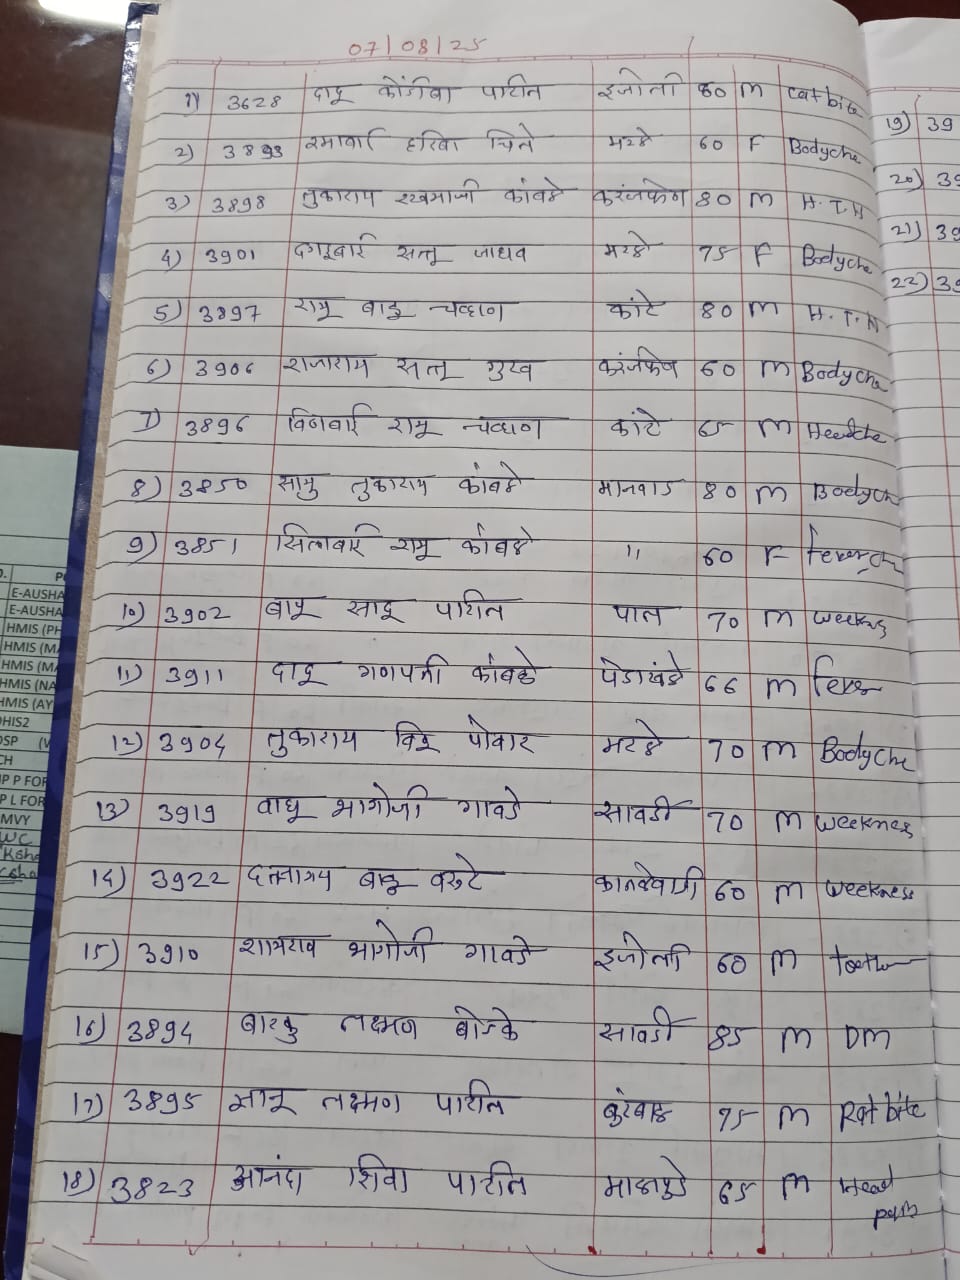 07/08/25
1) 3628 दादू कोंडीबा पाटील इजोली 60 M Cat bite
2) 3893 रमाबाई हरिबा चिले मरळे 60 F Bodyche
3) 3898 तुकाराम रखमाजी कांबळे करंजफेण 80 M H.T.N
4) 3901 दगडूबाई सत्तू जाधव मरळे 75 F Bodyche
5) 3897 रामू बाबू चव्हाण कांटे 80 M H.T.N
6) 3906 राजाराम सत्तू गुरव करंजफेण 60 M Bodyche
7) 3896 विठाबाई रामू चव्हाण कांटे 65 M Headche
8) 3850 सामु तुकाराम कांबळे मानवाड 80 M Bodych
9) 3851 सिताबाई रामू कांबळे " 60 F fever
10) 3902 बापू सादू पाटील पाल 70 M weekns
11) 3911 दादू गणपती कांबळे पेडाखळे 66 M fever
12) 3904 तुकाराम विठू पोवार मरळे 70 M BodyChe
13) 3919 वाघू भागोजी गावडे सावर्डी 70 M weeknes
14) 3922 दत्तात्रय बाबू वरुटे 60 M weekness
15) 3910 शामराव भागोजी गावडे इजोली 60 M
16) 3894 बारकु लक्ष्मण बोडके सावर्डी 85 M DM
17) 3895 सादू लक्ष्मण पाटील 75 M Rat bite
18) 3823 आनंदा शिवा पाटील 65 M Head
pain
19) 39
20) 39
21) 39
22) 39
E-AUSHA
E-AUSHA
HMIS (PH
HMIS (MA
HMIS (MA
HMIS (NA
HMIS (AY
DHIS2
P P FOR
P L FOR
MVY
WC